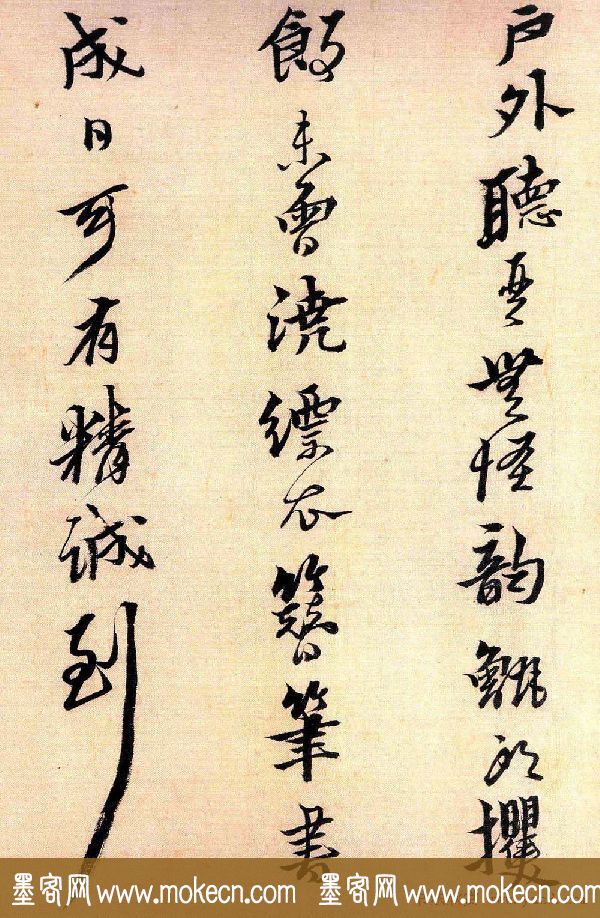 戶外聽無怪韻攫
餉未曾澆縹衣簪筆書
成日可有精誠到
墨客网 www.mokecn.com 墨客网 www.mokecn.com